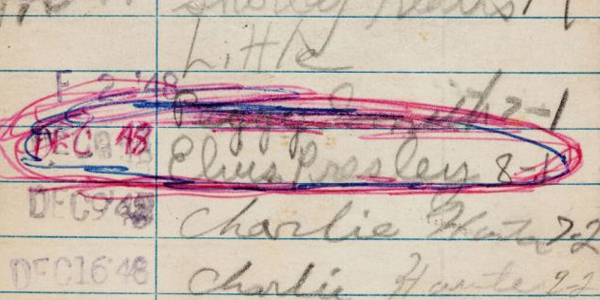 Little
F 2 '48 Peggy Smith 7-1
DEC 48 Elvis Presley 8-1
DEC 9 '48 Charlie 7-2
DEC 16 '48 Charlie 9-2